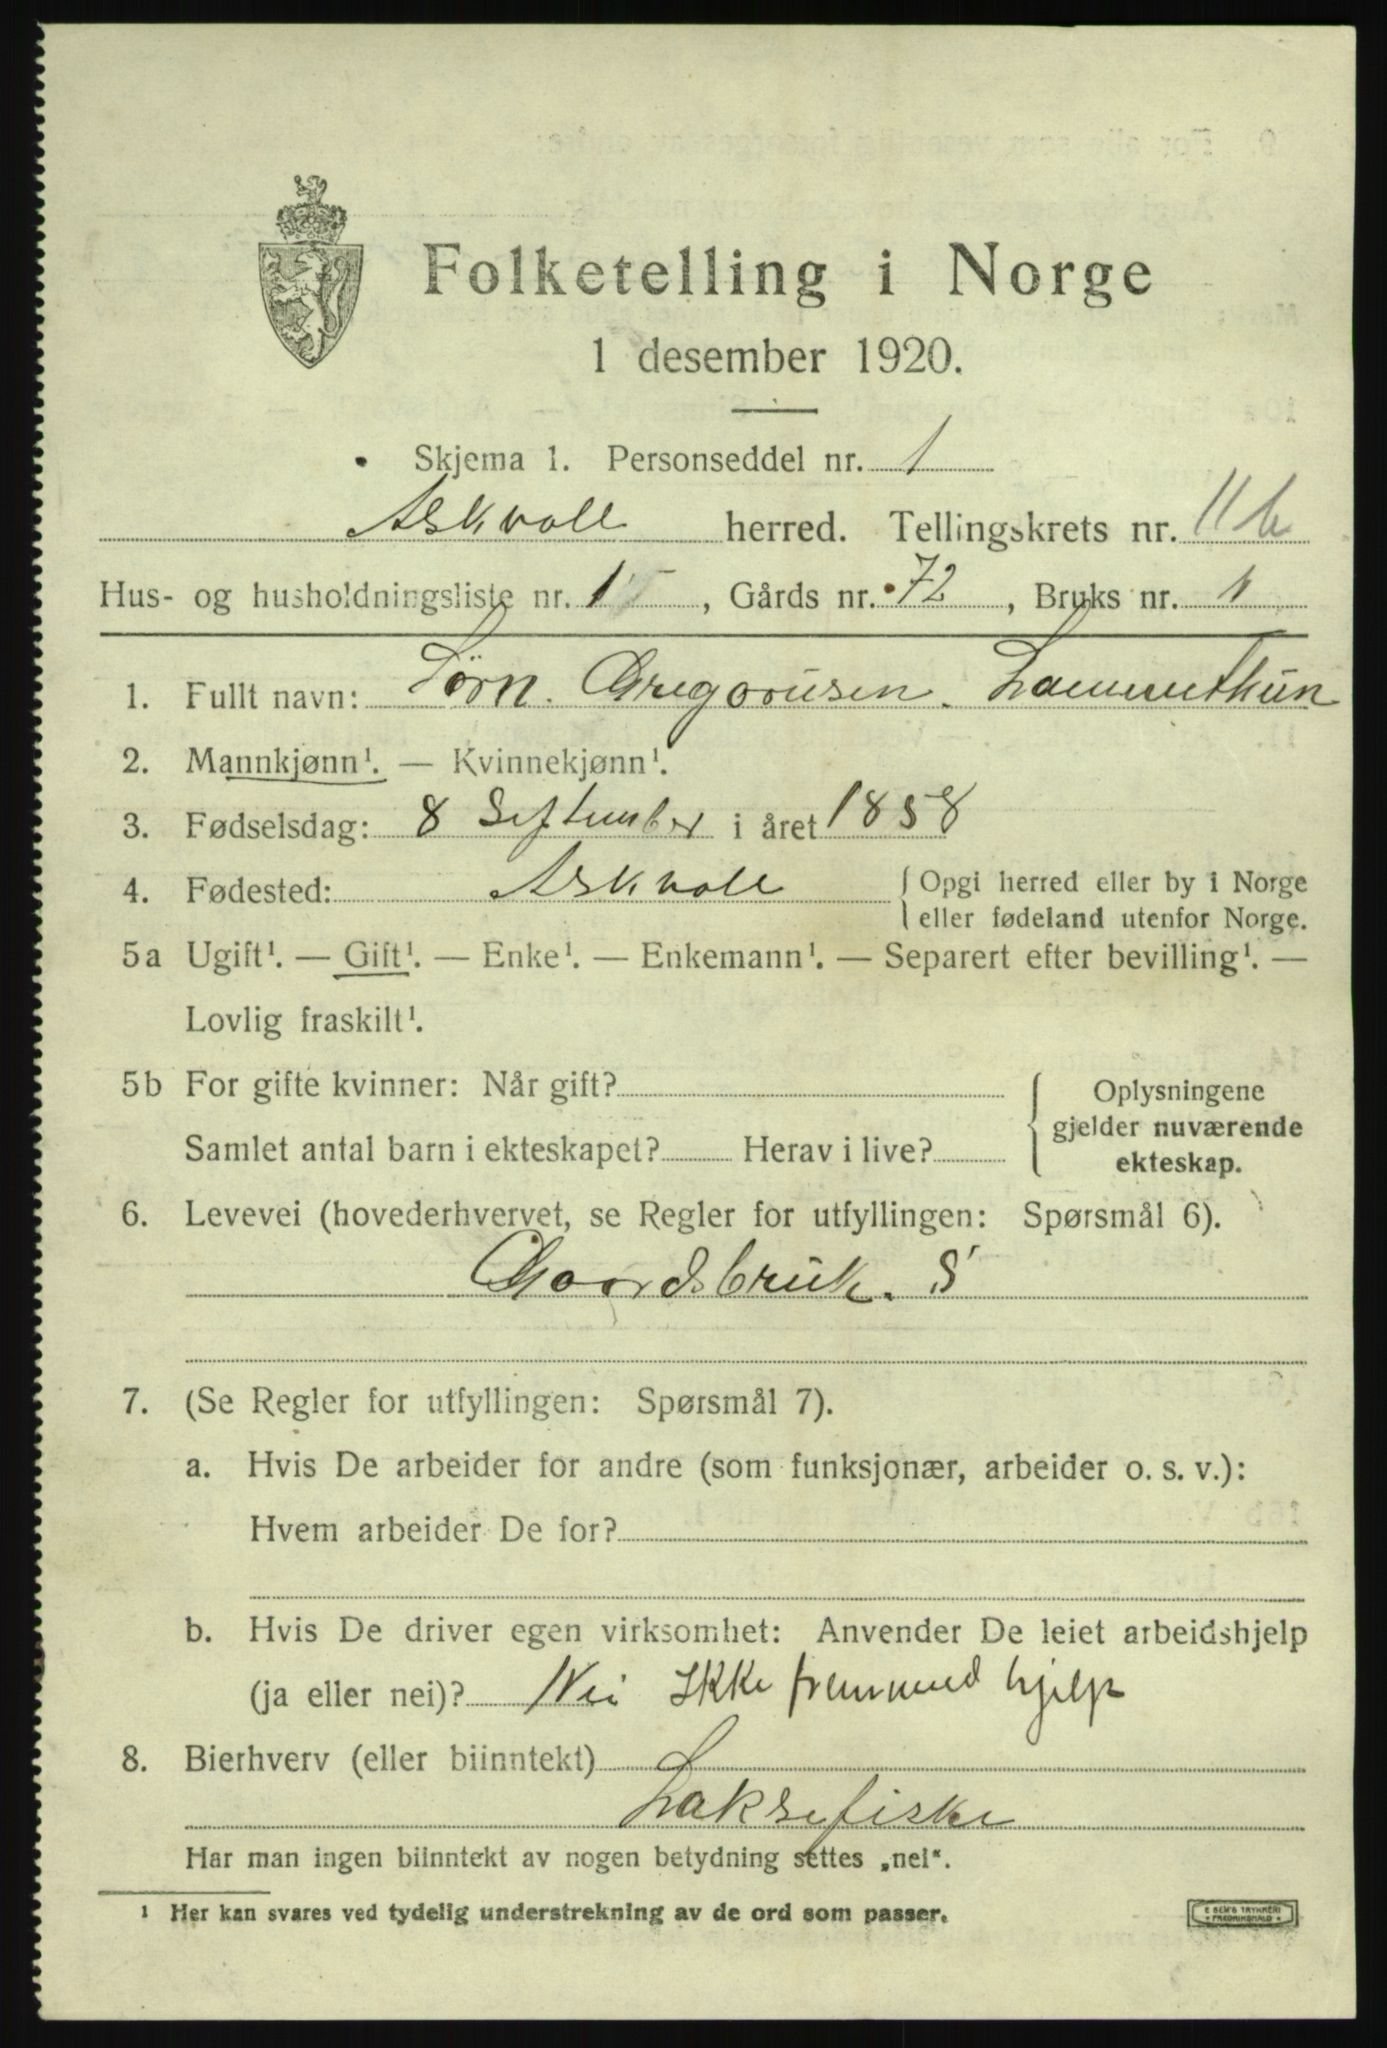 Folketelling i Norge
1 desember 1920.
Skjema 1. Personseddel nr. 1
Askvoll herred. Tellingskrets nr. 11b
Hus- og husholdningsliste nr. 1, Gårds nr. 72, Bruks nr. 1
1. Fullt navn: Jörn. Gregoriusen.
2. Mannkjønn¹. — Kvinnekjønn¹.
3. Fødselsdag: 8 September i året 1858
4. Fødested: Askvoll {Opgi herred eller by i Norge
eller fødeland utenfor Norge.
5a Ugift¹. — Gift¹. — Enke¹. — Enkemann¹. — Separert efter bevilling¹. —
Lovlig fraskilt¹.
5b For gifte kvinner: Når gift?
Samlet antal barn i ekteskapet? Herav i live?
{Oplysningene
gjelder nuværende
ekteskap.
6. Levevei (hovederhvervet, se Regler for utfyllingen: Spørsmål 6).
Gaardsbruk. S
7. (Se Regler for utfyllingen: Spørsmål 7).
a. Hvis De arbeider for andre (som funksjonær, arbeider o. s. v.):
Hvem arbeider De for?
b. Hvis De driver egen virksomhet: Anvender De leiet arbeidshjelp
(ja eller nei)? Nei Ikke fremmed hjelp
8. Bierhverv (eller biinntekt)
Laksefiske
Har man ingen biinntekt av nogen betydning settes „nei“.
¹ Her kan svares ved tydelig understrekning av de ord som passer.
E SEM'S TRYKKERI
• FREDRIKSHALD •